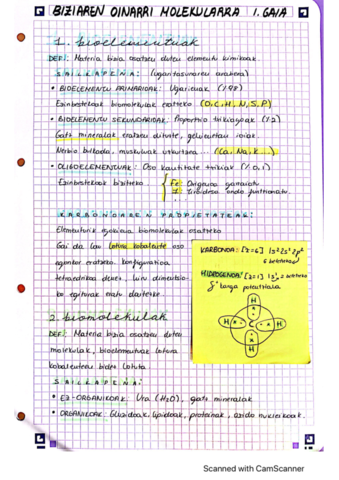 BIZIAREN OINARRI MOLEKULARRA 1. GAIA
1. bioelementuak
DEF: Materia bizia osatzen duten elementu kimikoak.
SAILKAPENA: (ugaritasunaren arabera)
• BIOELEMENTU PRIMARIOAK: Ugarienak (%98)
Ezinbestekoak biomolekulak eratzeko (O, C, H, N, S, P)
• BIOELEMENTU SEKUNDARIOAK: Proportzio txikiagoak (%2)
Gatz mineralak eratzen dituzte,
Nerbio bulkada, muskuluak uzkurtzea... (Ca, Na, K...)
• OLIGOELEMENTUAK: Oso kantitate txikiak (%0,1)
Ezinbestekoak bizitzeko. Fe: Oxigenoa garraiatu
I: tiroidesa ondo funtzionatu
...
KARBONOAREN PROPIETATEAK:
Elementurik egokiena biomolekulak osatzeko
Gai da lau lotura kobalente oso
egonkor eratzeko. Konfigurazioa
tetraedrikoa denez, hiru dimentsio-
ko egiturak eratu daitezke.
KARBONOA: [Z=6] 1s²2s²2p²
6 elektroi
HIDROGENOA: [Z=1] 1s¹
H
H C H
H
2. biomolekulak
DEF: Materia bizia osatzen duten
molekulak, bioelementuak lotura
kobalenteen bidez lotuta
SAILKAPENA:
• EZ-ORGANIKOAK: Ura (H₂O), gatz mineralak
• ORGANIKOAK: Gluzidoak, lipidoak, proteinak, azido nukleikoak.
Scanned with CamScanner